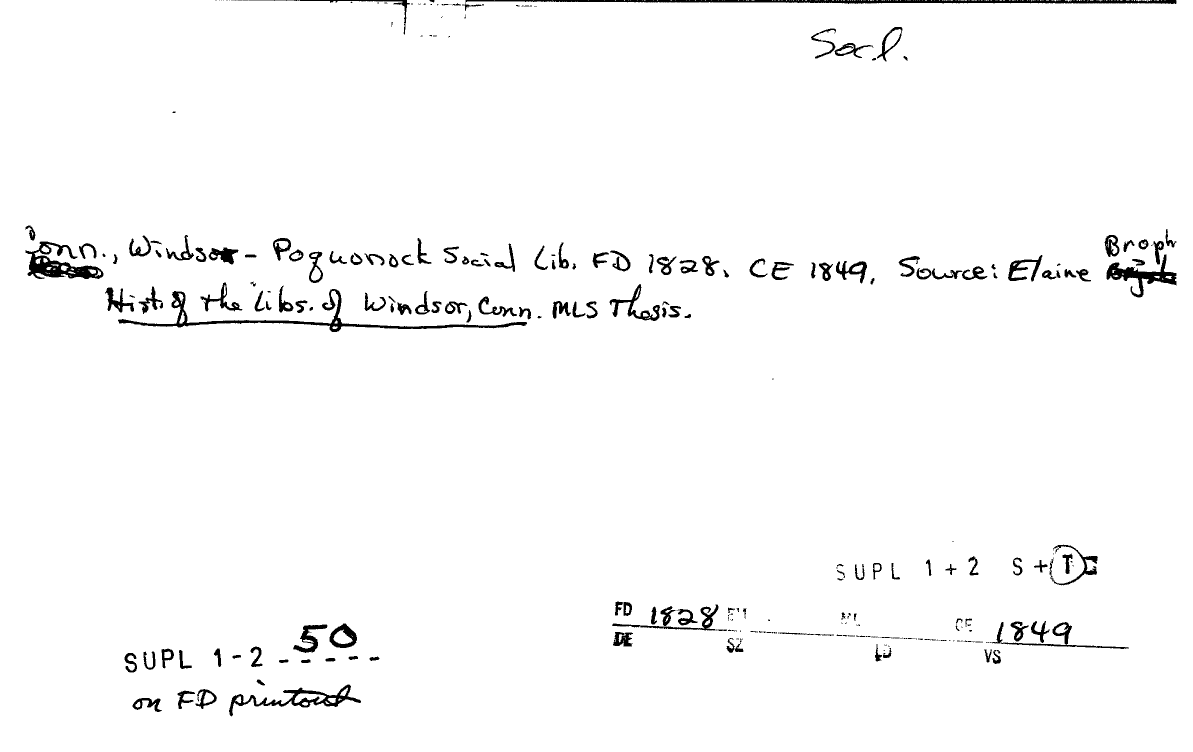 Socl.
Conn., Windsor - Poquonock Social Lib. FD 1828. CE 1849. Source: Elaine Broph
Hist. of the Libs. of Windsor, Conn. MLS Thesis.
SUPL 1+2 S+T
FD 1828 EM ML CE 1849
DE SZ LD VS
SUPL 1-2 50
on FD printout